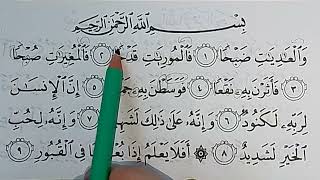 بِسْمِ اللَّهِ الرَّحْمَٰنِ الرَّحِيمِ
وَالْعَادِيَاتِ ضَبْحًا ١ فَالْمُورِيَاتِ قَدْحًا ٢ فَالْمُغِيرَاتِ صُبْحًا
٣ فَأَثَرْنَ بِهِ نَقْعًا ٤ فَوَسَطْنَ بِهِ ٥ إِنَّ الْإِنْسَانَ
لِرَبِّهِ لَكَنُودٌ ٦ وَإِنَّهُ عَلَىٰ ذَٰلِكَ وَإِنَّهُ لِحُبِّ
الْخَيْرِ لَشَدِيدٌ ٨ ۞ أَفَلَا يَعْلَمُ إِذَا فِي الْقُبُورِ ٩